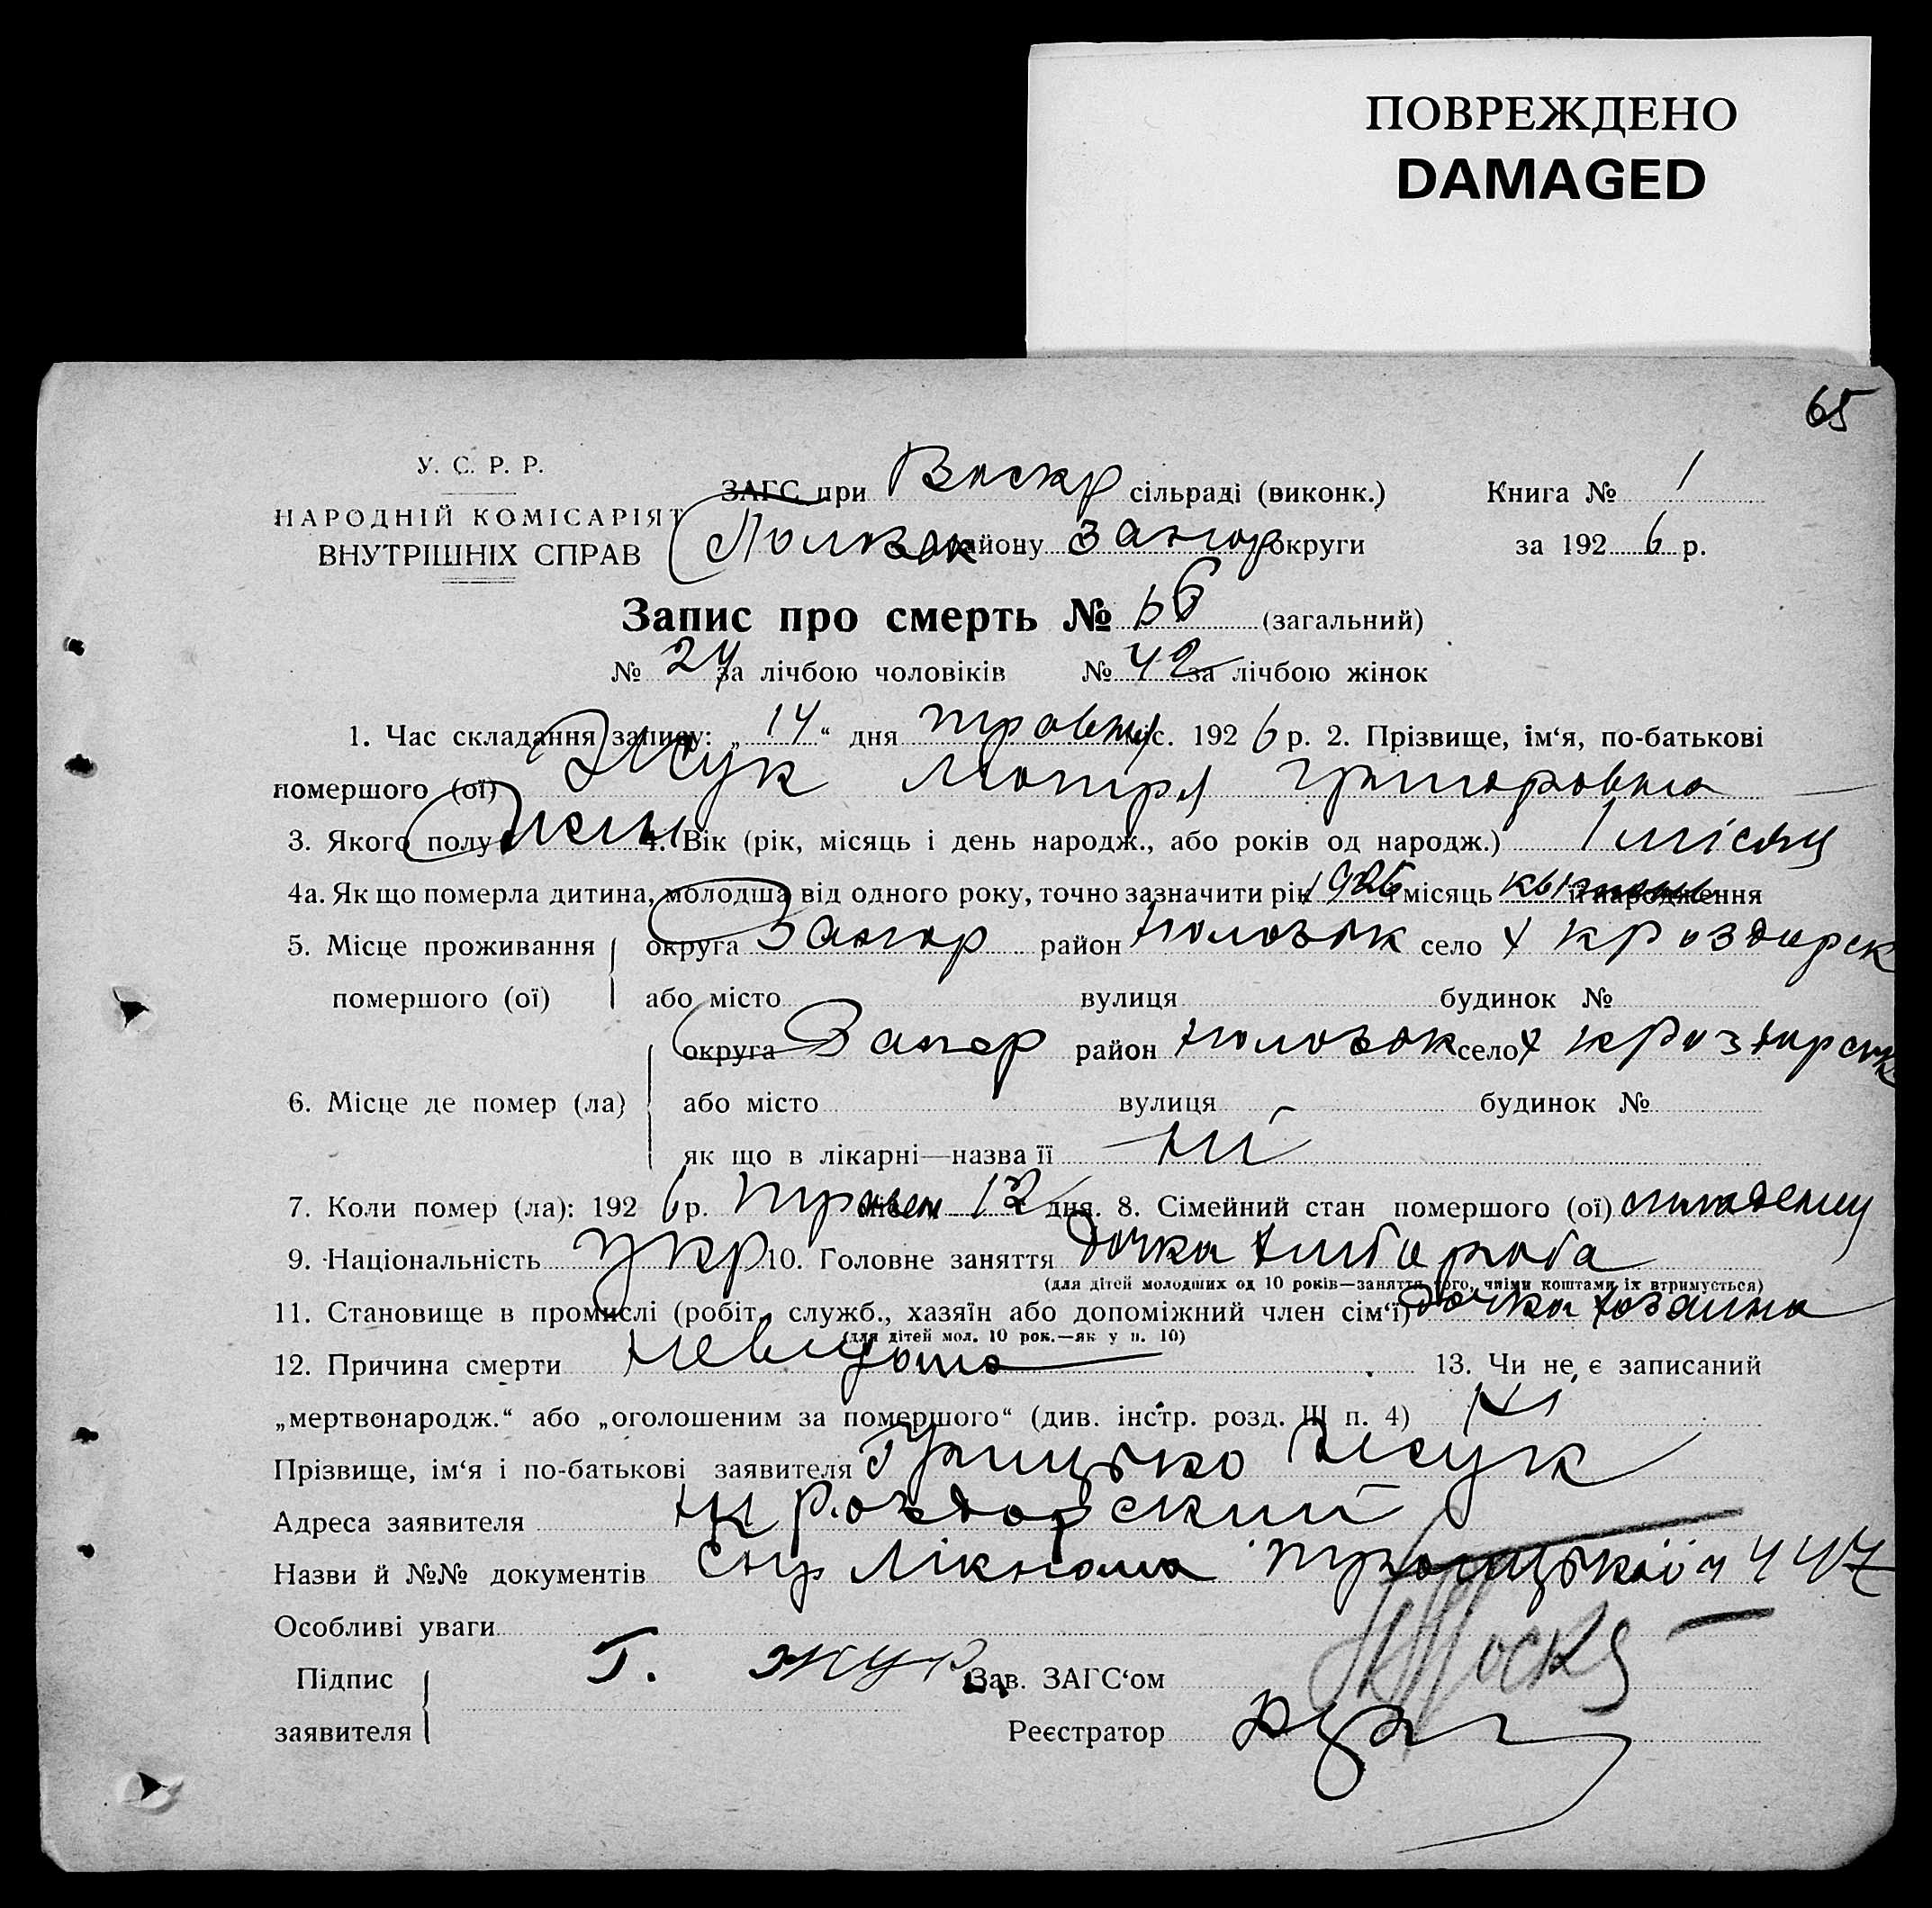 ПОВРЕЖДЕНО
DAMAGED
65
У. С. Р. Р.
НАРОДНІЙ КОМІСАРІЯТ
ВНУТРІШНІХ СПРАВ
ЗАГС при сільраді (виконк.) Книга № 1
району округи за 1926 р.
Запис про смерть № 66 (загальний)
№ 24 за лічбою чоловіків № 42 за лічбою жінок
1. Час складання запису: „14“ дня травня міс. 1926 р. 2. Прізвище, ім‘я, по-батькові
помершого (ої) Жук Мотря Григоровна
3. Якого полу жен 4. Вік (рік, місяць і день народж., або років од народж.) 1 місяц
4а. Як що померла дитина, молодша від одного року, точно зазначити рік 1926 і місяць її народження
5. Місце проживання помершого (ої) округа Запор район село
або місто вулиця будинок №
6. Місце де помер (ла) округа Запор район село
або місто вулиця будинок №
як що в лікарні—назва її ні
7. Коли помер (ла): 1926 р. травен місяц 12 дня. 8. Сімейний стан помершого (ої) младенец
9. Національність Укр 10. Головне заняття дочка хлібороба
(для дітей молодших од 10 років—заняття того, чиїми коштами їх втримується)
11. Становище в промислі (робіт., служб., хазяїн або допоміжний член сім‘ї) дочка хозаина
(для дітей мол. 10 рок.—як у п. 10)
12. Причина смерти невидома 13. Чи не є записаний
„мертвонародж.“ або „оголошеним за помершого“ (див. інстр. розд. III п. 4) ні
Прізвище, ім‘я і по-батькові заявителя Грицько Жук
Адреса заявителя
Назви й №№ документів 447
Особливі уваги
Підпис заявителя Г. Жук. Зав. ЗАГС‘ом
Реєстратор